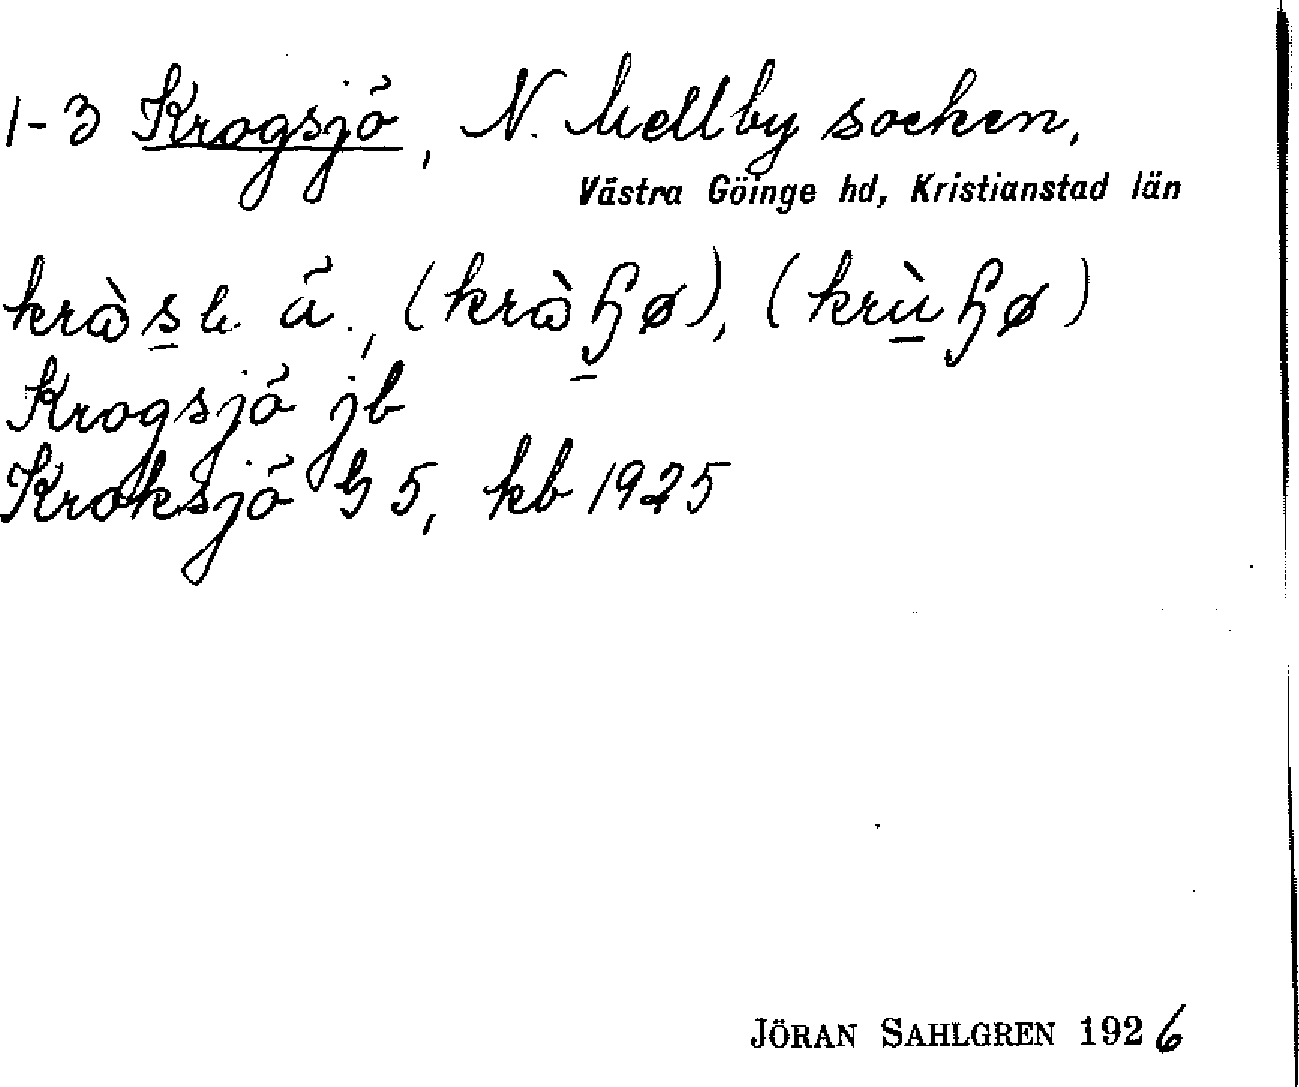 1-3 Krogsjö, N. Mellby socken,
Västra Göinge hd, Kristianstad län
Krogsjö jb
Kroksjö G5, kb 1925
JÖRAN SAHLGREN 1926